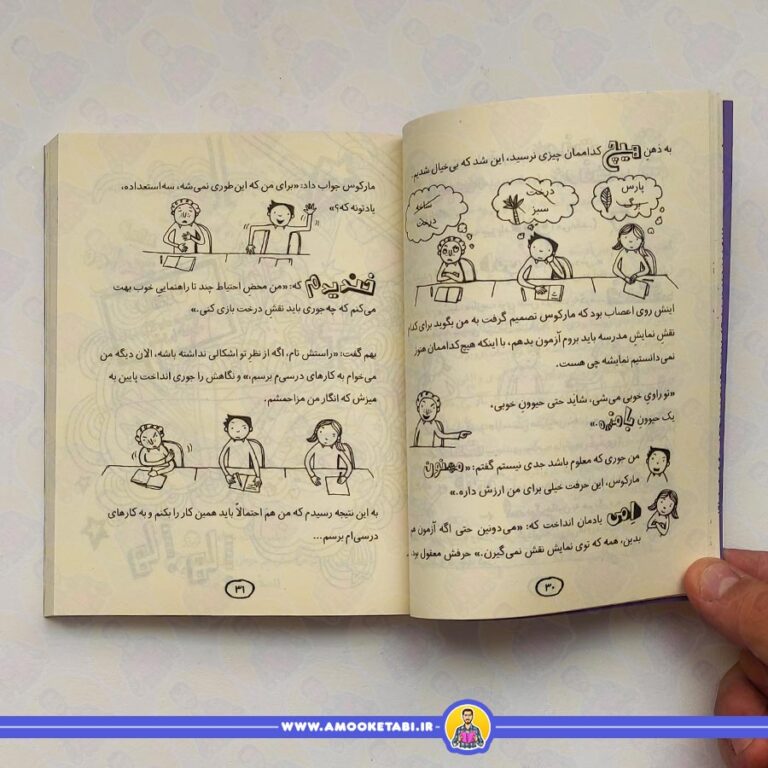 به ذهنِ هیچ کداممان چیزی نرسید، این شد که بی‌خیال شدیم.
پارس
برگ
درخت
سبز
ساقه
درخت
اینش روی اعصاب بود که مارکوس تصمیم گرفت به من بگوید برای کدام
نقشِ نمایش مدرسه باید بروم آزمون بدهم، با اینکه هیچ‌کداممان هنوز
نمی‌دانستیم نمایشه چی هست.
«تو راویِ خوبی می‌شی، شاید حتی حیوونِ خوبی.
یک حیوونِ بامزه.»
من جوری که معلوم باشد جدی نیستم گفتم: «ممنون
مارکوس، این حرفت خیلی برای من ارزش داره.»
اِمی یادمان انداخت که: «می‌دونین حتی اگه آزمون هم
بدین، همه که توی نمایش نقش نمی‌گیرن.» حرفش معقول بود.
۳۰
مارکوس جواب داد: «برای من که این‌طوری نمی‌شه، سه‌استعداده،
یادتونه که؟»
خندیدم که: «من محضِ احتیاط چند تا راهنماییِ خوب بهت
می‌کنم که چه‌جوری باید نقشِ درخت بازی کنی.»
بهم گفت: «راستش تام، اگه از نظر تو اشکالی نداشته باشه، الان دیگه من
می‌خوام به کارهای درسی‌م برسم.» و نگاهش را جوری انداخت پایین به
میزش که انگار من مزاحمشم.
به این نتیجه رسیدم که من هم احتمالاً باید همین کار را بکنم و به کارهای
درسی‌ام برسم...
۳۱
WWW.AMOOKETABI.IR